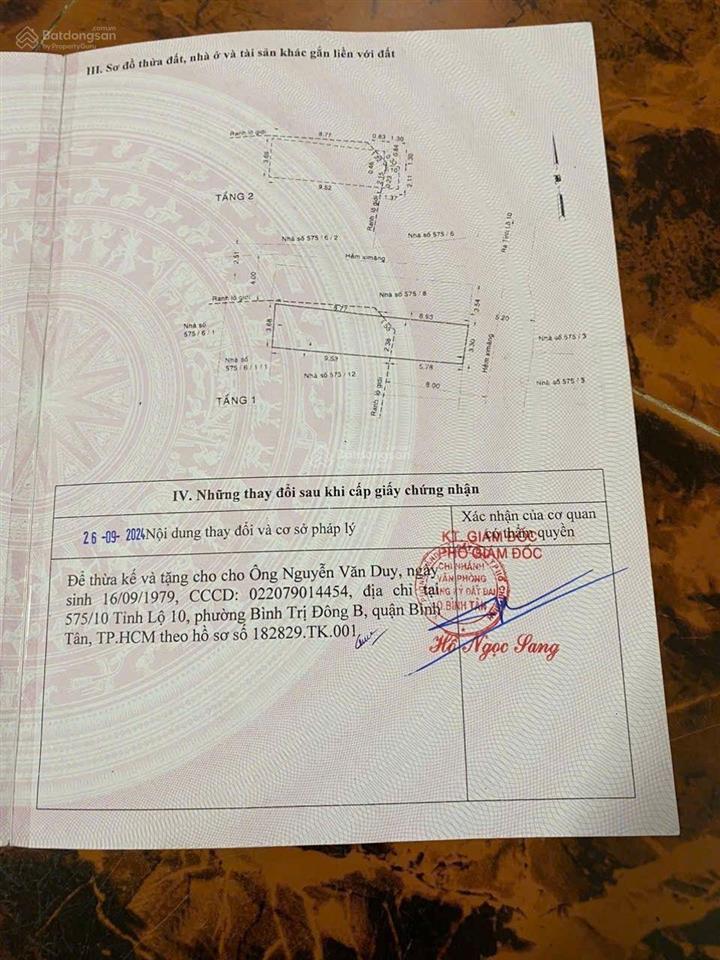 Batdongsan
.com.vn
by PropertyGuru
III. Sơ đồ thửa đất, nhà ở và tài sản khác gắn liền với đất
Ranh lộ giới
8.77
0.83
1.30
3.66
0.46
0.84
1.30
2.15
0.23
2.11
9.52
1.37
TẦNG 2
Ranh lộ giới
Nhà số 575/6/2
Nhà số 575/6
Ra Tỉnh Lộ 10
2.51
4.00
Hẻm ximăng
Nhà số 575/8
3.54
Ranh lộ giới
9.77
8.93
5.20
Nhà số
575/6/1
3.68
2.38
3.30
Hẻm ximăng
Nhà số 575/3
Nhà số
575/6/1/1
9.53
5.78
Nhà số 575/12
8.00
Nhà số 575/5
TẦNG 1
Ranh lộ giới
Batdongsan
IV. Những thay đổi sau khi cấp giấy chứng nhận
26-09-2024 Nội dung thay đổi và cơ sở pháp lý
Xác nhận của cơ quan
có thẩm quyền
KT. GIÁM ĐỐC
PHÓ GIÁM ĐỐC
Để thừa kế và tặng cho cho Ông Nguyễn Văn Duy, ngày
sinh 16/09/1979, CCCD: 022079014454, địa chỉ tại
575/10 Tỉnh Lộ 10, phường Bình Trị Đông B, quận Bình
Tân, TP.HCM theo hồ sơ số 182829.TK.001
CHI NHÁNH
VĂN PHÒNG
ĐĂNG KÝ ĐẤT ĐAI
Q.BÌNH TÂN
Hồ Ngọc Sang